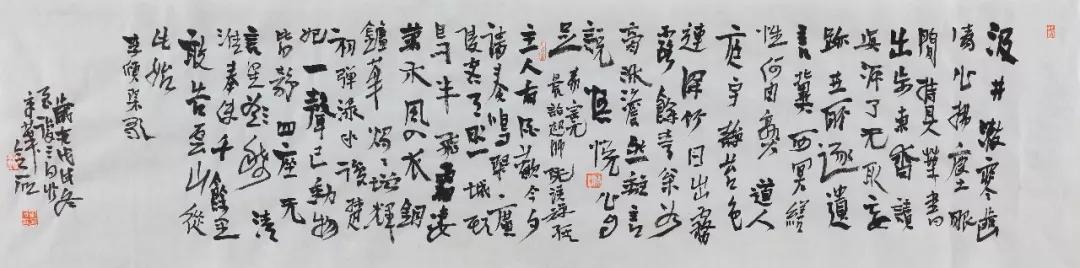 汲井漱寒齒
清心拂塵服
閒持貝葉書
出步東齋讀
真源了无取妄
跡世所逐遺
言冀可冥繕
性何由熟道人
庭宇靜苔色
連深竹日出霧
露餘青松如
膏沐澹然離言
說悟悅心自
足
晨詣超師院讀禪經
主人有酒歡今夕
請奏鳴琴廣
陵客月照城頭
烏半飛霜淒
萬木風入衣銅
鑪華燭燭增輝
初彈淥水後楚
妃一聲已動物
皆靜四座无
言星欲稀清
淮奉使千餘里
敢告雲山從
此始
李頎琴歌
歲在戊戌冬